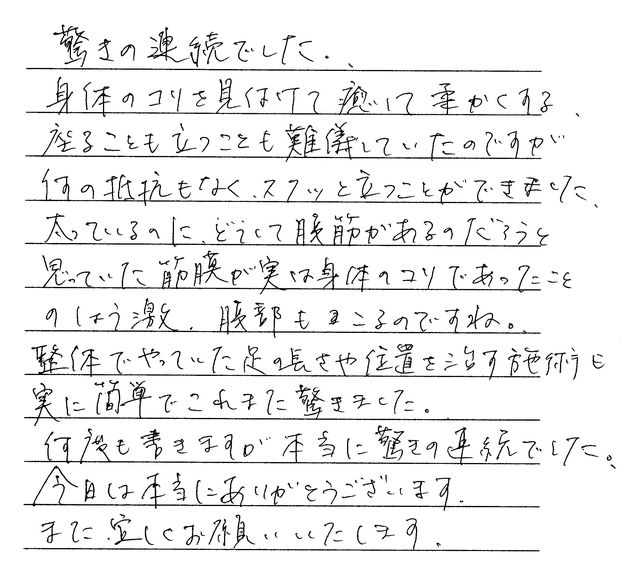 驚きの連続でした.、
身体のコリを見付けて癒して柔かくする、
座ることも立つことも難儀していたのですが
何の抵抗もなく、スクッと立つことができました、
太っているのに、どうして腹筋があるのだろうと
思っていた筋膜が実は身体のコリであったこと
のしょう激、腹部もコるのですね。
整体でやっていた足の長さや位置を治す施術も
実に簡単でこれまた驚きました。
何度も書きますが本当に驚きの連続でした。
今日は本当にありがとうございます.
また宜しくお願いいたします.